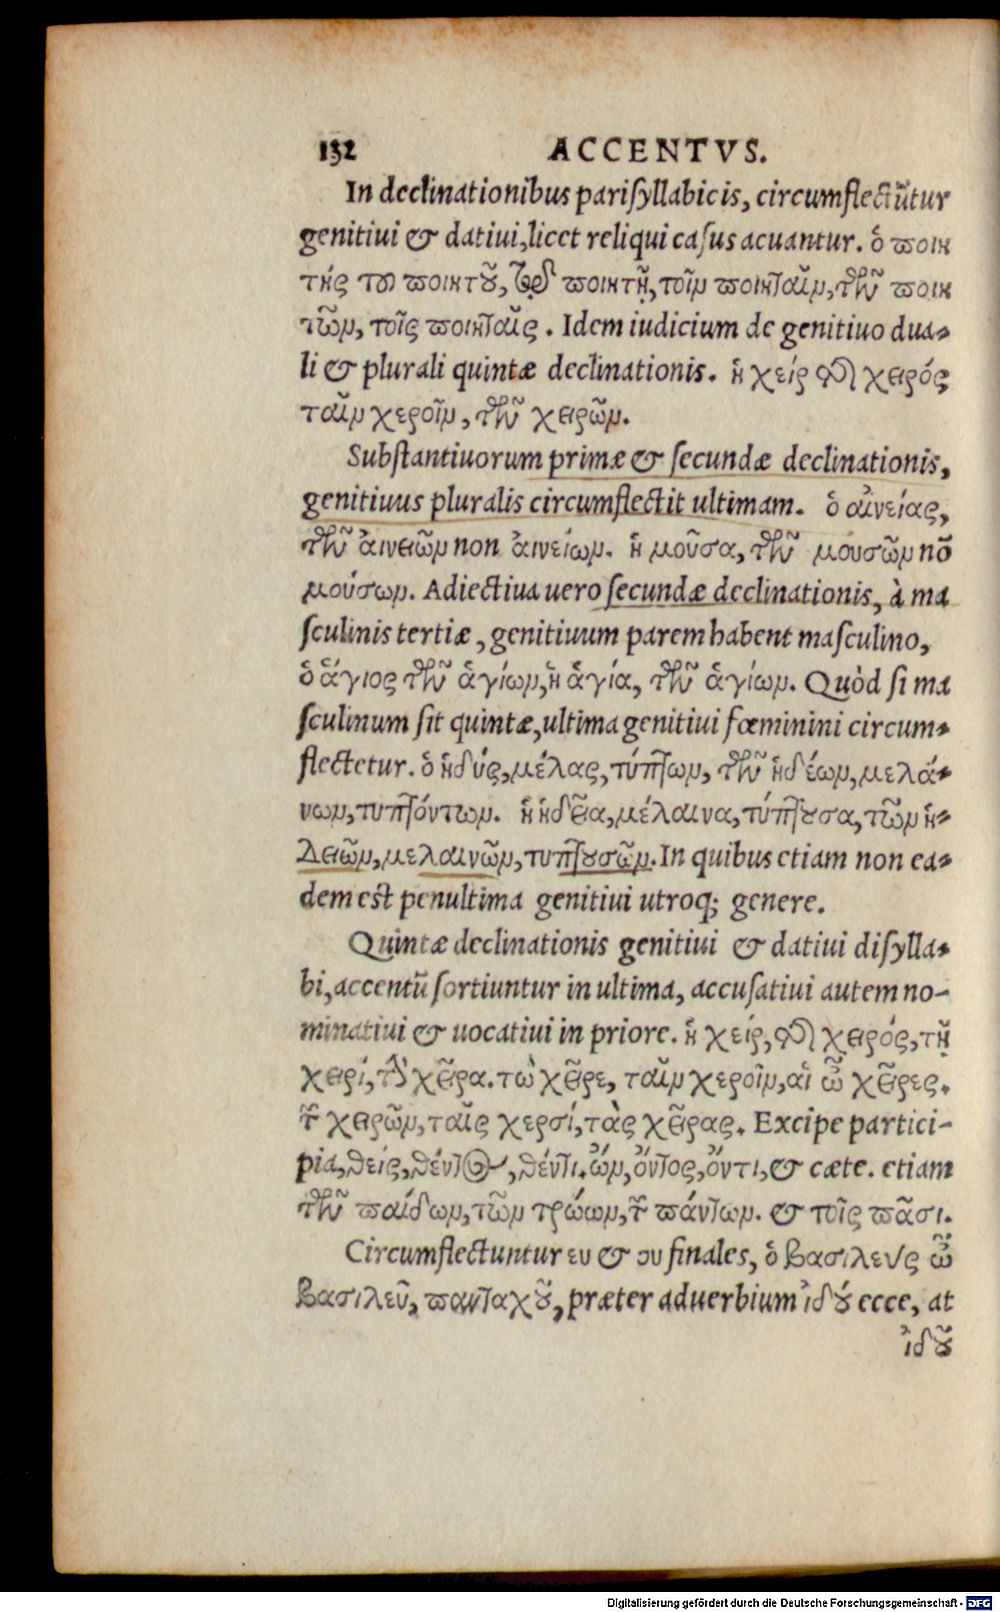 132 ACCENTVS.
In declinationibus parisyllabicis, circumflectũtur
genitiui & datiui, licet reliqui casus acuantur. ὁ ποιη
τής τοῦ ποιητοῦ, τῷ ποιητῇ, τοῖν ποιηταῖν, τῶν ποιη
τῶν, τοῖς ποιηταῖς. Idem iudicium de genitiuo dua-
li & plurali quintæ declinationis. ἡ χείρ τῆς χειρός
ταῖν χεροῖν, τῶν χειρῶν.
Substantiuorum primæ & secundæ declinationis,
genitiuus pluralis circumflectit ultimam. ὁ αἰνείας,
τῶν αἰνειῶν non αἰνείων. ἡ μοῦσα, τῶν μουσῶν nõ
μούσων. Adiectiua uero secundæ declinationis, à ma
sculinis tertiæ, genitiuum parem habent masculino,
ὁ ἅγιος τῶν ἁγίων, ἡ ἁγία, τῶν ἁγίων. Quòd si ma
sculinum sit quintæ, ultima genitiui fœminini circum-
flectetur. ὁ ἡδύς, μέλας, τύπτων, τῶν ἡδέων, μελά-
νων, τυπτόντων. ἡ ἡδεῖα, μέλαινα, τύπτουσα, τῶν ἡ-
δειῶν, μελαινῶν, τυπτουσῶν. In quibus etiam non ea-
dem est penultima genitiui utroq; genere.
Quintæ declinationis genitiui & datiui disylla-
bi, accentũ sortiuntur in ultima, accusatiui autem no-
minatiui & uocatiui in priore. ἡ χείρ, τῆς χειρός, τῇ
χειρί, τὴν χεῖρα. τὼ χεῖρε, ταῖν χεροῖν, αἱ ὦ χεῖρες.
τῶν χειρῶν, ταῖς χερσί, τὰς χεῖρας. Excipe partici-
pia, θείς, θέντος, θέντι. ὤν, ὄντος, ὄντι, & cæte. etiam
τῶν παίδων, τῶν τρώων, τῶν πάντων. & τοῖς πᾶσι.
Circumflectuntur ευ & ου finales, ὁ βασιλεύς ὦ
βασιλεῦ, πανταχοῦ, præter aduerbium ἰδού ecce, at
ἰδοῦ
Digitalisierung gefördert durch die Deutsche Forschungsgemeinschaft - DFG